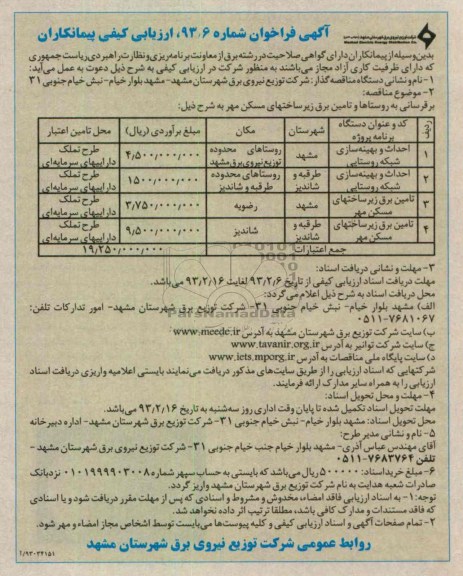 آگهی فراخوان شماره ۹۳٫۶، ارزیابی کیفی پیمانکاران
بدین‌وسیله از پیمانکاران دارای گواهی صلاحیت در رشته برق از معاونت برنامه‌ریزی و نظارت راهبردی ریاست جمهوری
که دارای ظرفیت کاری آزاد مجاز می‌باشند به منظور شرکت در ارزیابی کیفی به شرح ذیل دعوت به عمل می‌آید:
۱- نام و نشانی دستگاه مناقصه‌گذار: شرکت توزیع نیروی برق شهرستان مشهد- مشهد بلوار خیام- نبش خیام جنوبی ۳۱
۲- موضوع مناقصه:
برقرسانی به روستاها و تامین برق زیرساختهای مسکن مهر به شرح ذیل:
ردیف | کد و عنوان دستگاه برنامه پروژه | شهرستان | مکان | مبلغ برآوردی (ریال) | محل تامین اعتبار
۱ | احداث و بهینه‌سازی شبکه روستایی | مشهد | روستاهای محدوده توزیع نیروی برق مشهد | ۴٫۵۰۰٫۰۰۰٫۰۰۰ | طرح تملک داراییهای سرمایه‌ای
۲ | احداث و بهینه‌سازی شبکه روستایی | طرقبه و شاندیز | روستاهای محدوده طرقبه و شاندیز | ۱۵۰۰٫۰۰۰٫۰۰۰ | طرح تملک داراییهای سرمایه‌ای
۳ | تامین برق زیرساختهای مسکن مهر | مشهد | رضویه | ۳٫۷۵۰٫۰۰۰٫۰۰۰ | طرح تملک داراییهای سرمایه‌ای
۴ | تامین برق زیرساختهای مسکن مهر | طرقبه و شاندیز | شاندیز | ۹٫۵۰۰٫۰۰۰٫۰۰۰ | طرح تملک داراییهای سرمایه‌ای
جمع اعتبارات | ۱۹٫۲۵۰٫۰۰۰٫۰۰۰
۳- مهلت و نشانی دریافت اسناد:
مهلت دریافت اسناد ارزیابی کیفی از تاریخ ۹۳٫۲٫۶ لغایت ۹۳٫۲٫۱۶ می‌باشد.
محل دریافت اسناد به شرح ذیل اعلام می‌گردد:
الف) مشهد بلوار خیام- نبش خیام جنوبی ۳۱- شرکت توزیع برق شهرستان مشهد- امور تدارکات تلفن:
۰۵۱۱-۷۶۸۱۰۶۷
ب) سایت شرکت توزیع برق شهرستان مشهد به آدرس www.meedc.ir
ج) سایت شرکت توانیر به آدرس www.tavanir.org.ir
د) سایت پایگاه ملی مناقصات به آدرس www.iets.mporg.ir
شرکتهایی که اسناد ارزیابی را از طریق سایت‌های مذکور دریافت می‌نمایند بایستی اعلامیه واریزی دریافت اسناد
ارزیابی را به همراه سایر مدارک ارائه فرمایند.
۴- مهلت و محل تحویل اسناد:
مهلت تحویل اسناد تکمیل شده تا پایان وقت اداری روز سه‌شنبه به تاریخ ۹۳٫۲٫۱۶ می‌باشد.
محل تحویل اسناد: مشهد بلوار خیام- نبش خیام جنوبی ۳۱- شرکت توزیع برق شهرستان مشهد- اداره دبیرخانه
۵- نام و نشانی مدیر طرح:
آقای مهندس عباس آذری- مشهد بلوار خیام جنب خیام جنوبی ۳۱- شرکت توزیع نیروی برق شهرستان مشهد -
تلفن ۷۶۸۳۷۶۴-۰۵۱۱
۶- مبلغ خرید اسناد: ۵۰۰۰۰۰ ریال می‌باشد که بایستی به حساب سپهر شماره ۰۱۰۱۹۹۹۹۰۳۰۰۸ نزد بانک
صادرات شعبه هدایت به نام شرکت توزیع برق شهرستان مشهد واریز گردد.
توجه: ۱- به اسناد ارزیابی فاقد امضاء، مخدوش و مشروط و اسنادی که پس از مهلت مقرر دریافت شود و یا اسنادی
که فاقد مستندات و مدارک کافی باشد، مطلقا ترتیب اثر داده نخواهد شد.
۲- تمام صفحات آگهی و اسناد ارزیابی کیفی و کلیه پیوست‌ها می‌بایست توسط اشخاص مجاز امضاء و مهر شود.
روابط عمومی شرکت توزیع نیروی برق شهرستان مشهد